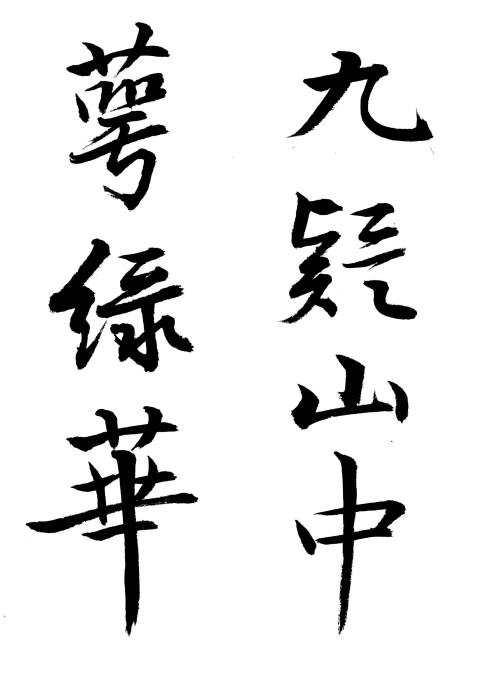 九疑山中
萼緑華